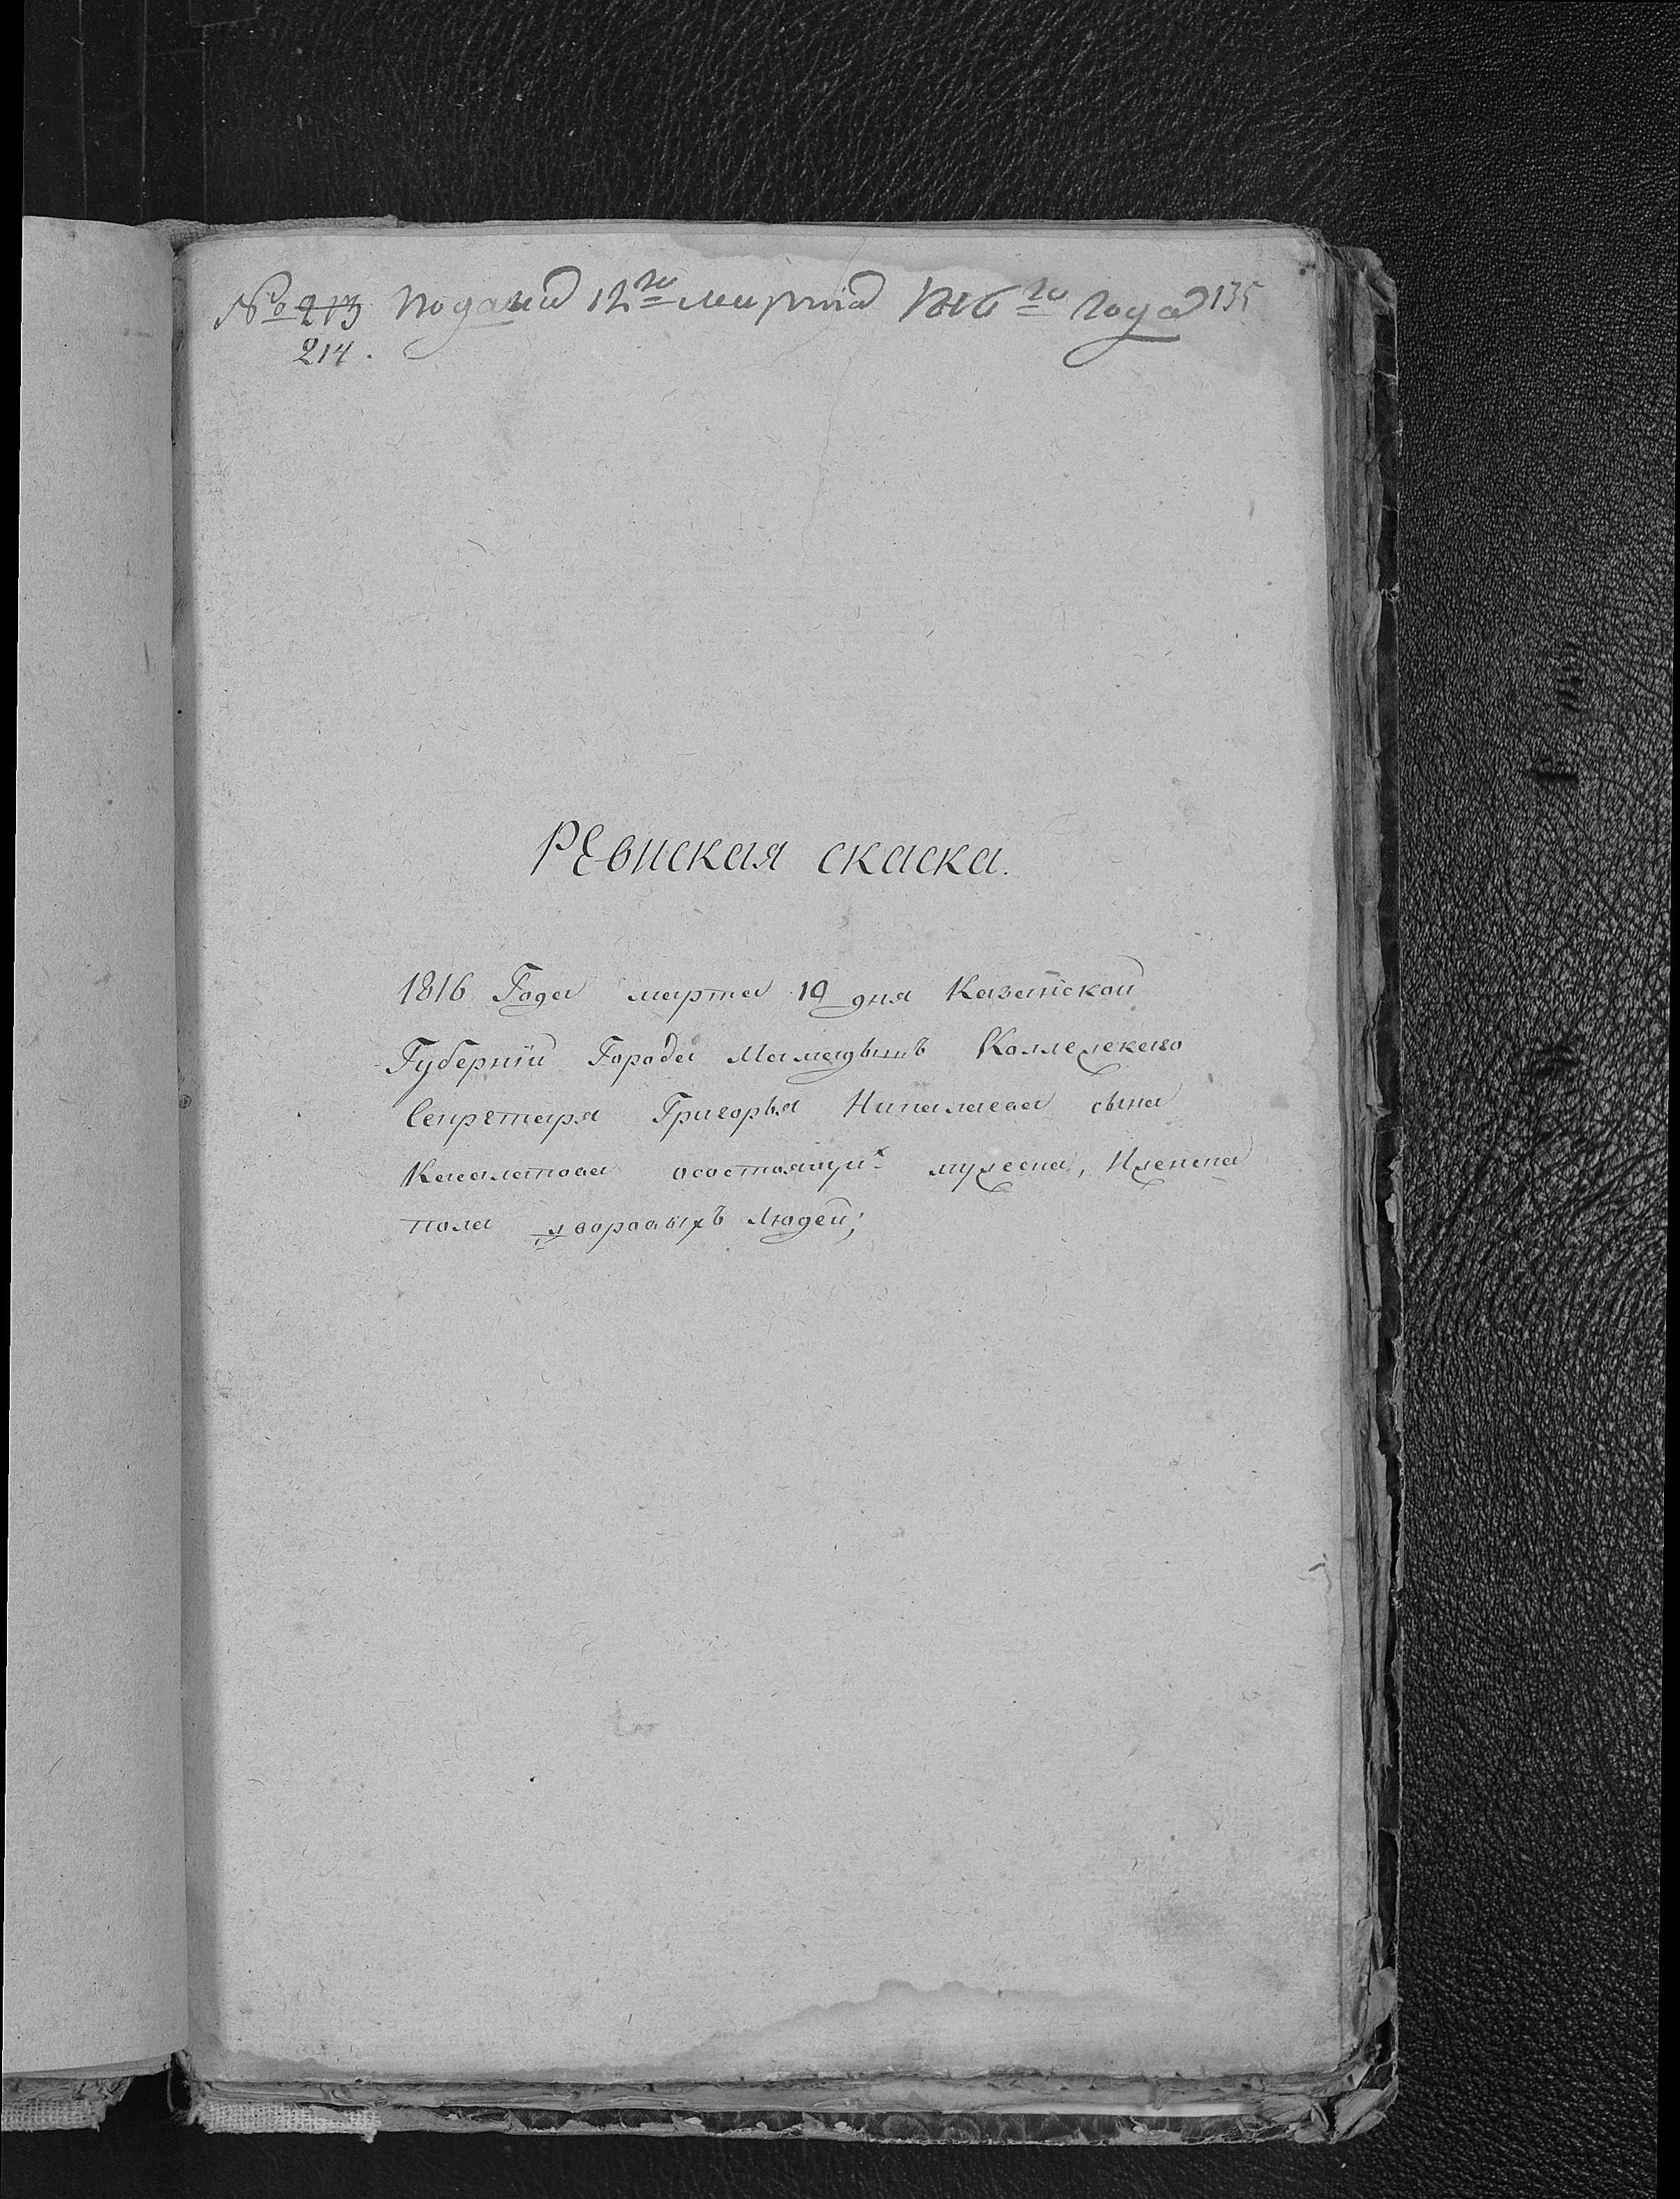 № 213 подана 12го марта 1816го Года 135
214.
РЕвиская скаска.
1816 Года марта 10 дня Казанской
Губернïи Города Мамадышъ Коллежскаго
Секретаря Григорья Николаева сына
осостоящихъ мужеска, Иженска
пола дворовыхъ людей;